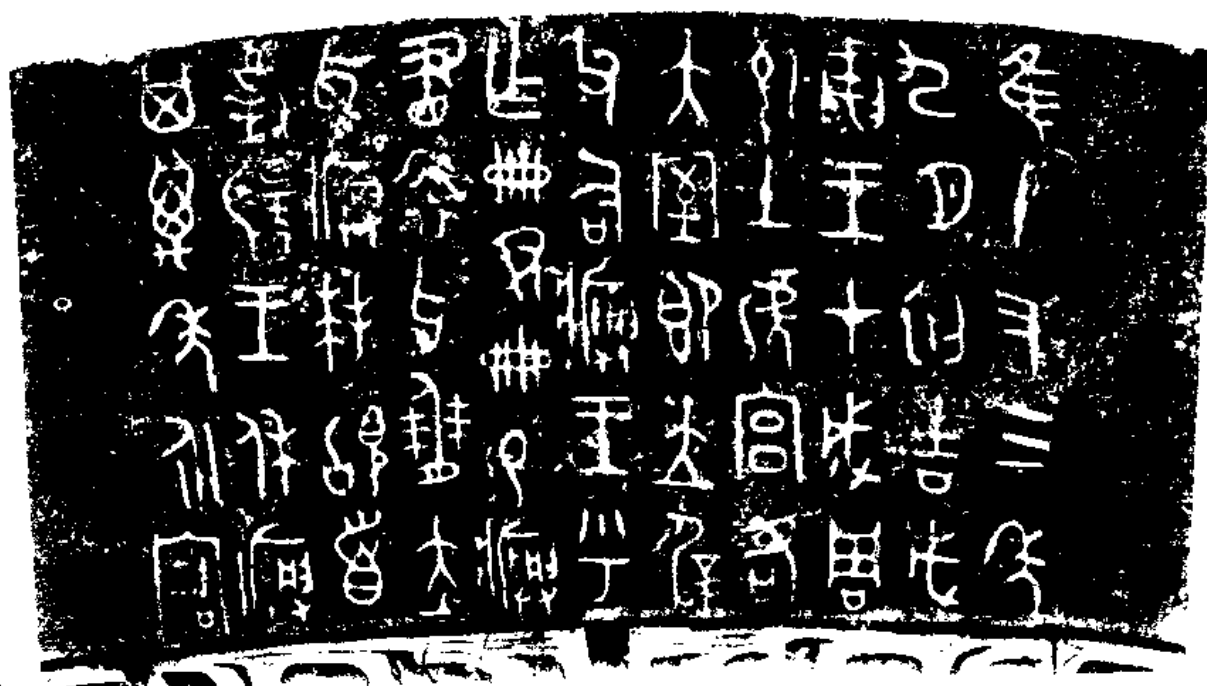 隹十又三年
九月初吉戊
寅王才成周
𤔲土淲宮各
大室即立𢓊
父右𤼈王乎
乍冊尹冊易𤼈
畫袞牙僰赤
舄𤼈拜𩒨首
對揚王休𤼈
其萬年永寶